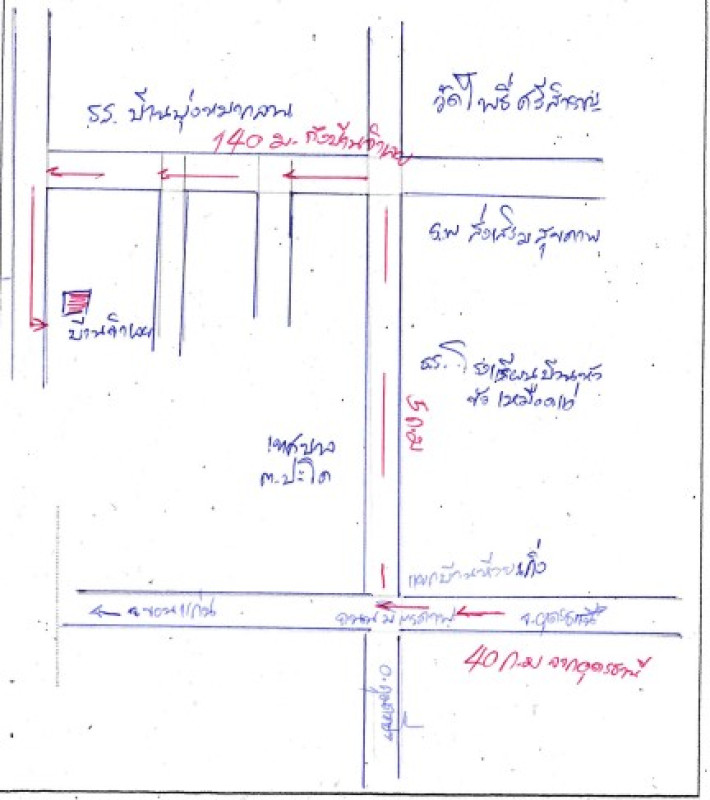 รร. บ้านพุ่งหมากลาน
วัดโพธิ์ศรีสำราญ
140 ม. ถึงบ้านจำเลย
ร.พ ส่งเสริมสุขภาพ
บ้านจำเลย
5 กม
เทศบาล
ต.ปะโค
แยกบ้านห้วยเกิ้ง
จ.ขอนแก่น
ถนนมิตรภาพ
จ.อุดรธานี
40 ก.ม จากอุดรธานี